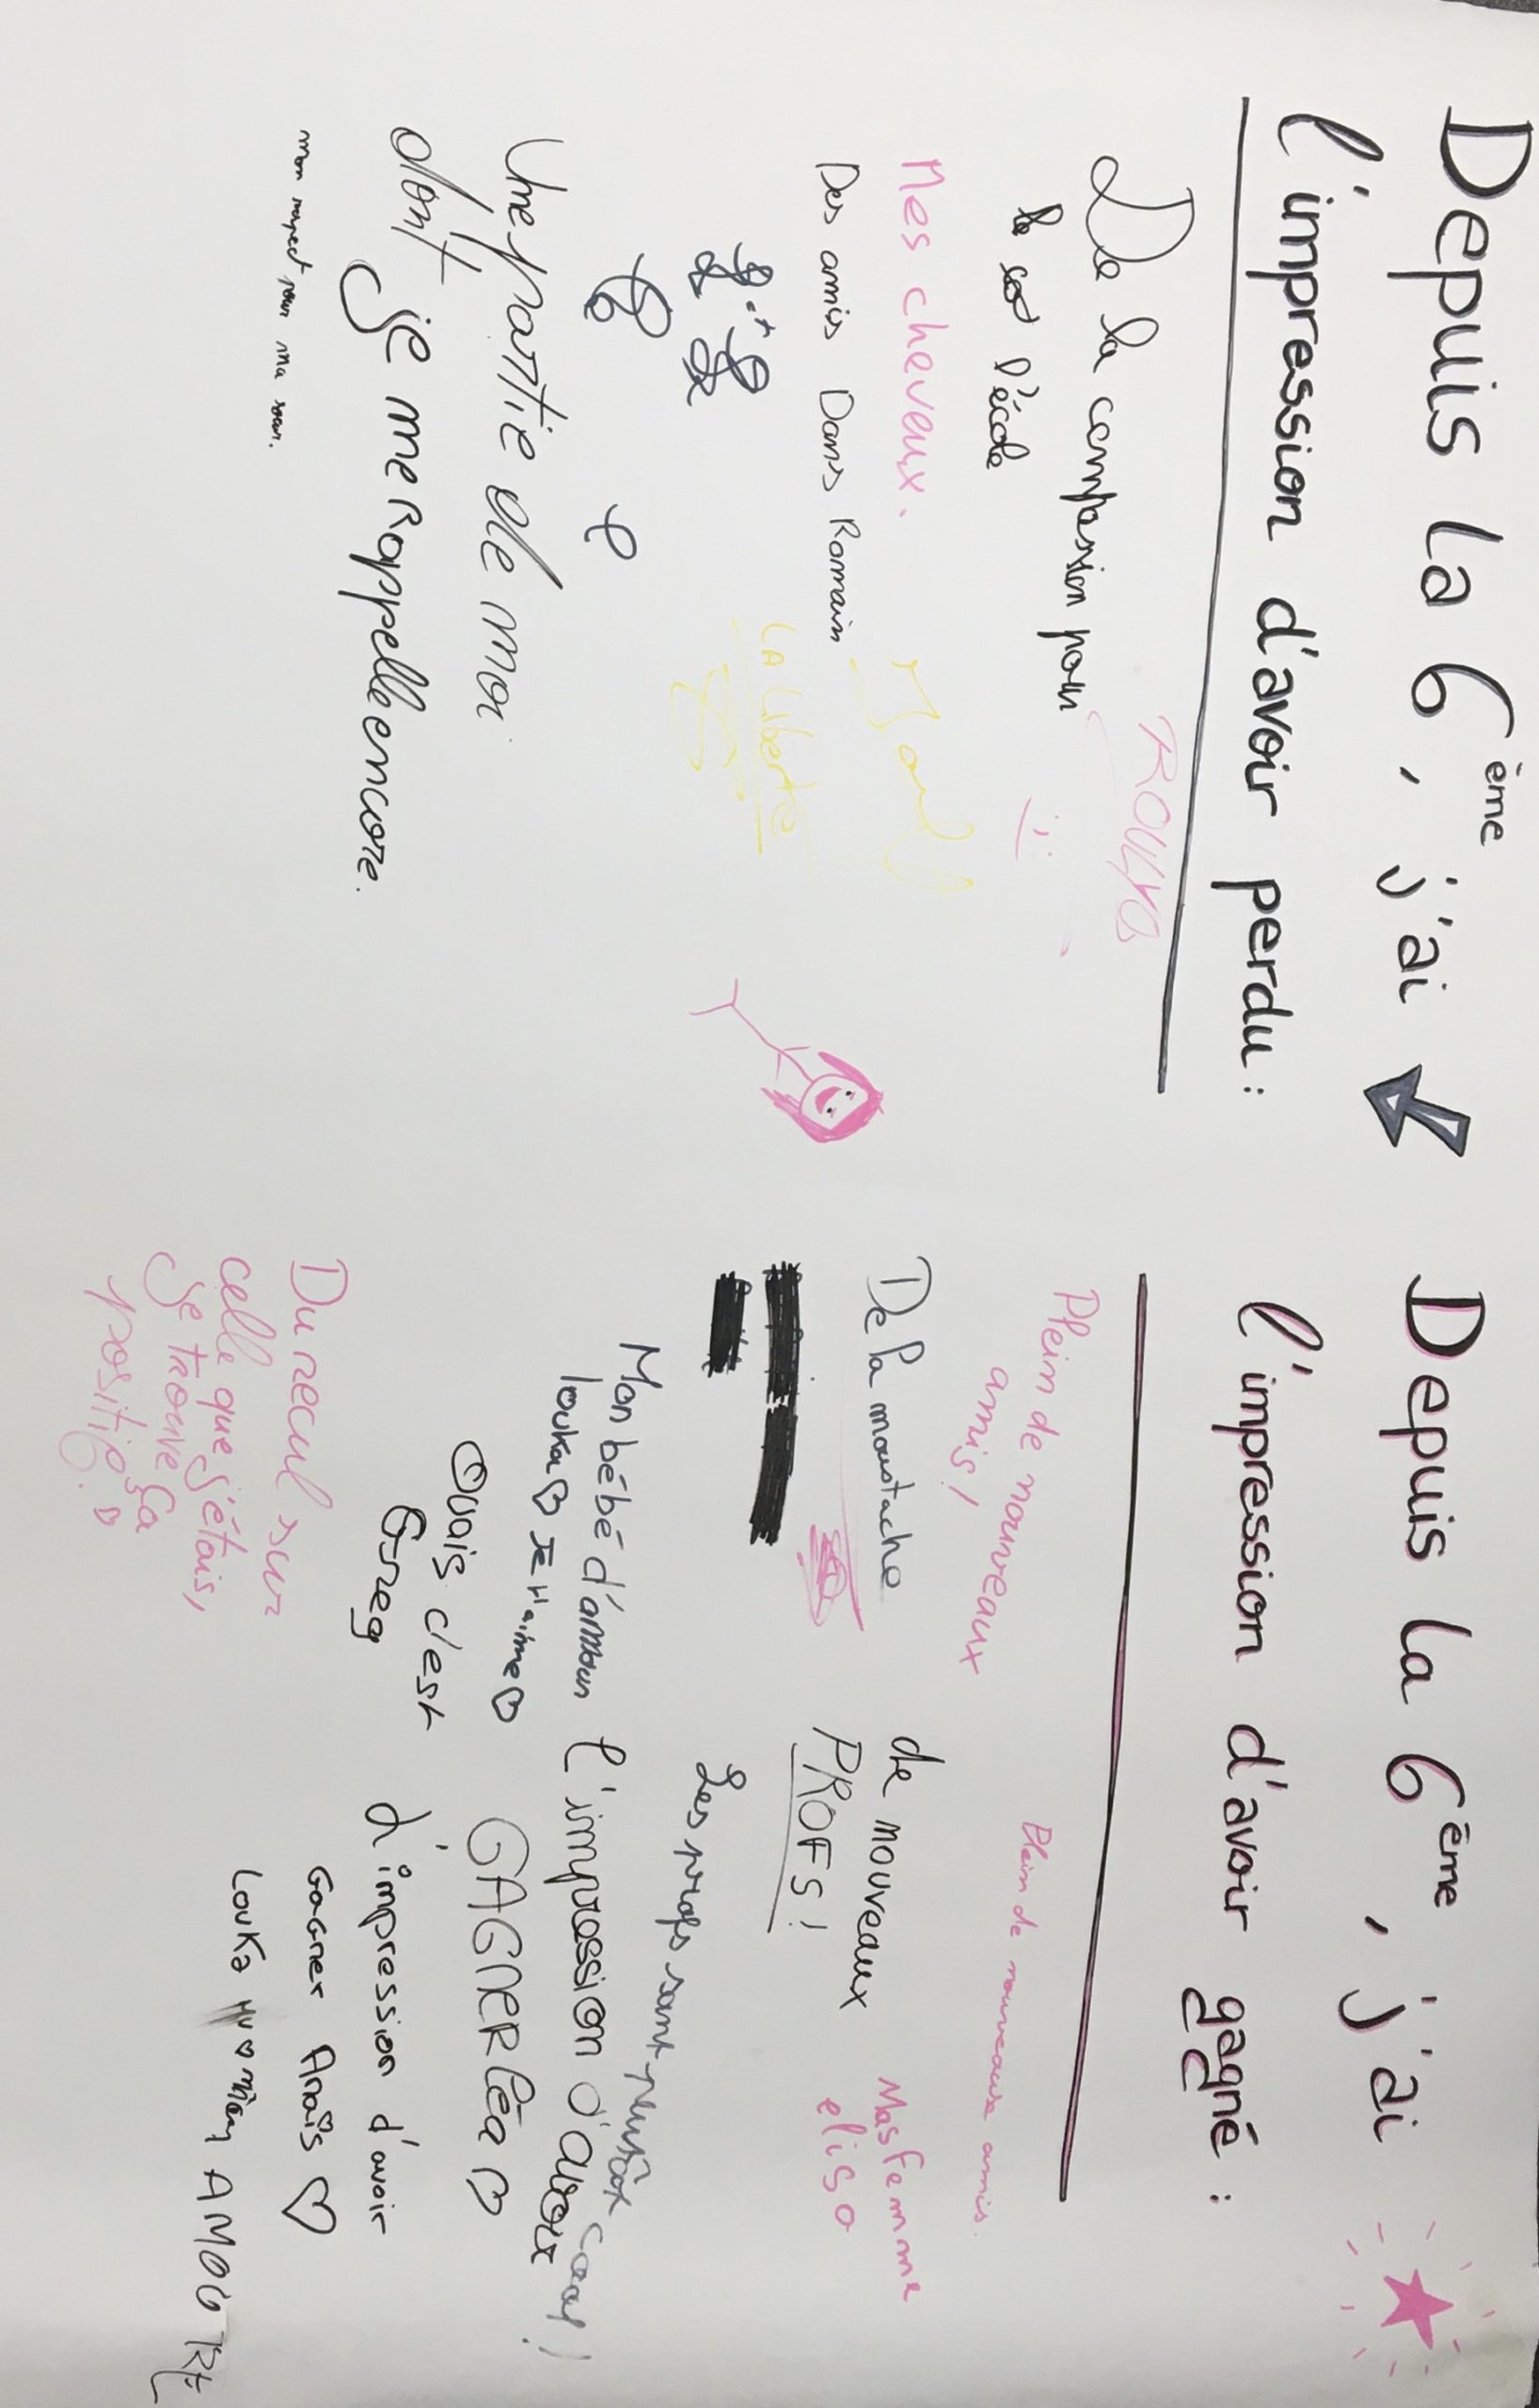 Depuis la 6ème, j'ai
l'impression d'avoir perdu :
De la compassion pour
l'école
Mes cheveux.
Des amis Dans Romain
LA Liberté
Une partie de moi
dont je me Rappelle encore.
mon respect pour ma sœur.
Depuis la 6ème, j'ai
l'impression d'avoir gagné :
Plein de nouveaux
amis !
Plein de nouveaux amis.
De la moustache
de nouveaux
PROFS !
Mas femme
elisa
Les profs sont plutôt cool !
Mon bébé d'amour
louka ♡ JE t'aime ♡
l'impression d'avoir
GAGNER Léa ♡
Ouais c'est
Greg
L'impression d'avoir
Gagner Anaïs ♡
Louka
Du recul sur
celle que j'étais,
Je trouve ça
positif. ♡